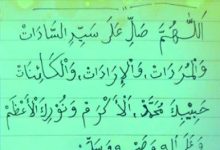 اَللّٰهُمَّ صَلِّ عَلَى سَيِّدِ السَّادَاتْ
وَالْمُرَادَاتْ وَالْإِرَادَاتْ وَالْكَائِنَاتْ
حَبِيْبِكَ مُحَمَّدٍ الْأَكْرَمِ وَنُوْرِكَ الْأَعْظَمْ
وَعَلَى آلِهِ وَصَحْبِهِ وَسَلِّمْ